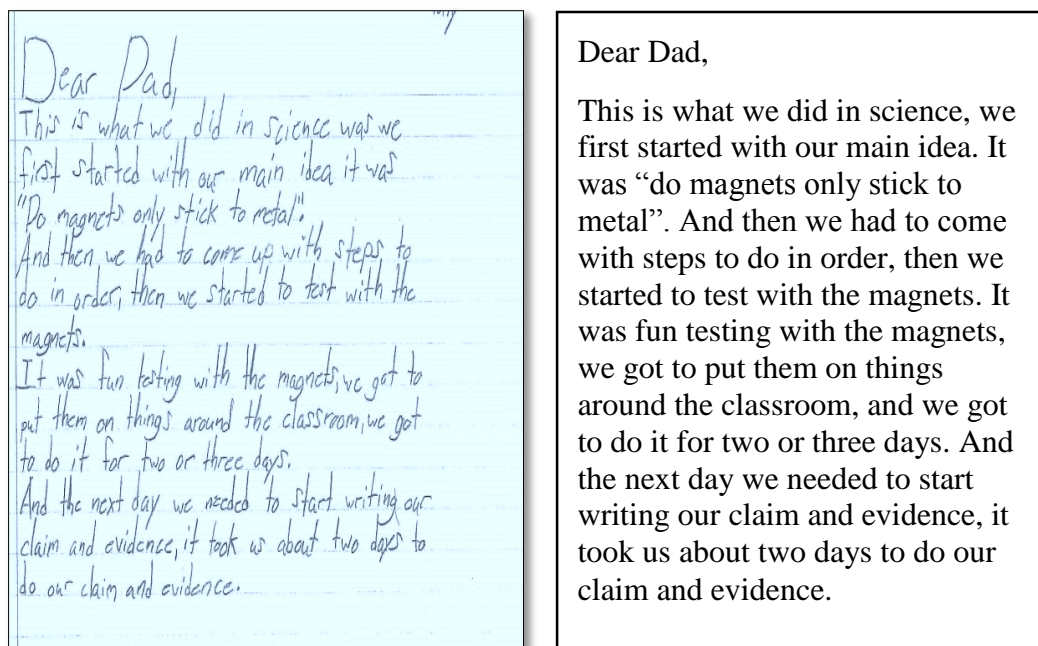 Dear Dad,
This is what we did in science was we
first started with our main idea it was
"Do magnets only stick to metal".
And then we had to come up with steps to
do in order, then we started to test with the
magnets.
It was fun testing with the magnets, we got to
put them on things around the classroom, we got
to do it for two or three days.
And the next day we needed to start writing our
claim and evidence, it took us about two days to
do our claim and evidence.
Dear Dad,
This is what we did in science, we
first started with our main idea. It
was “do magnets only stick to
metal”. And then we had to come
with steps to do in order, then we
started to test with the magnets. It
was fun testing with the magnets,
we got to put them on things
around the classroom, and we got
to do it for two or three days. And
the next day we needed to start
writing our claim and evidence, it
took us about two days to do our
claim and evidence.